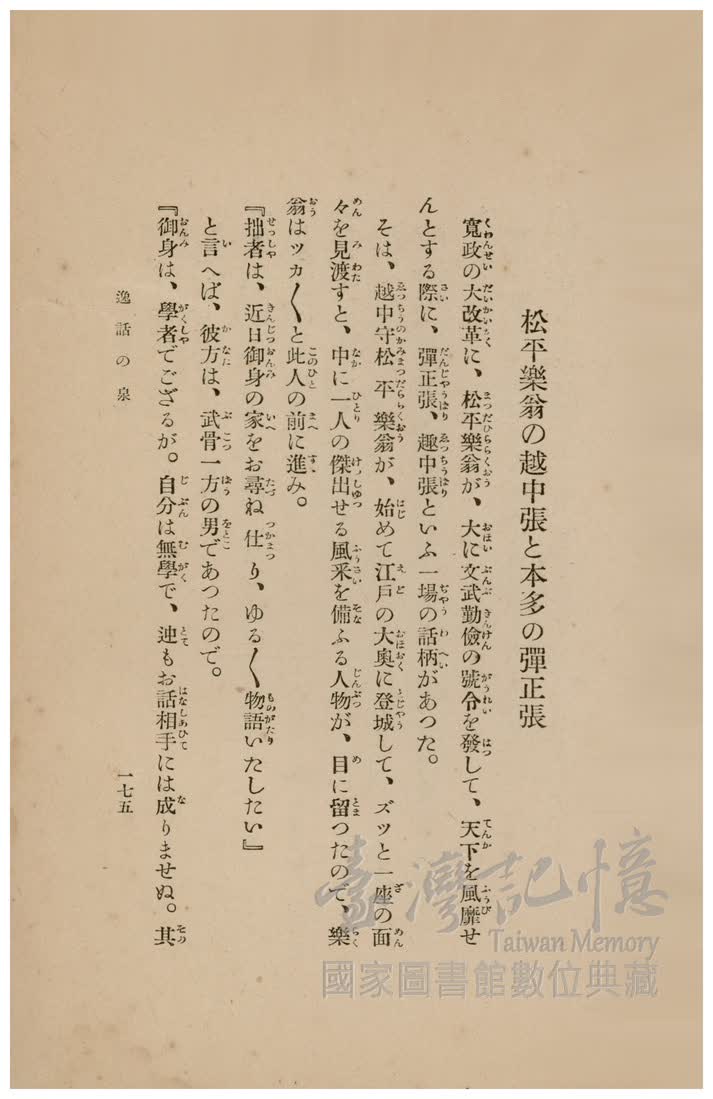 松平樂翁の越中張と本多の彈正張
寬政の大改革に、松平樂翁が、大に文武勤儉の號令を發して、天下を風靡せ
んとする際に、彈正張、趣中張といふ一場の話柄があつた。
そは、越中守松平樂翁が、始めて江戸の大奧に登城して、ズツと一座の面
々を見渡すと、中に一人の傑出せる風釆を備ふる人物が、目に留つたので、樂
翁はツカ〱と此人の前に進み。
『拙者は、近日御身の家をお尋ね仕り、ゆる〱物語いたしたい』
と言へば、彼方は、武骨一方の男であつたので。
『御身は、學者でござるが。自分は無學で、迚もお話相手には成りませぬ。其
逸話の泉
一七五
臺灣記憶
Taiwan Memory
國家圖書館數位典藏